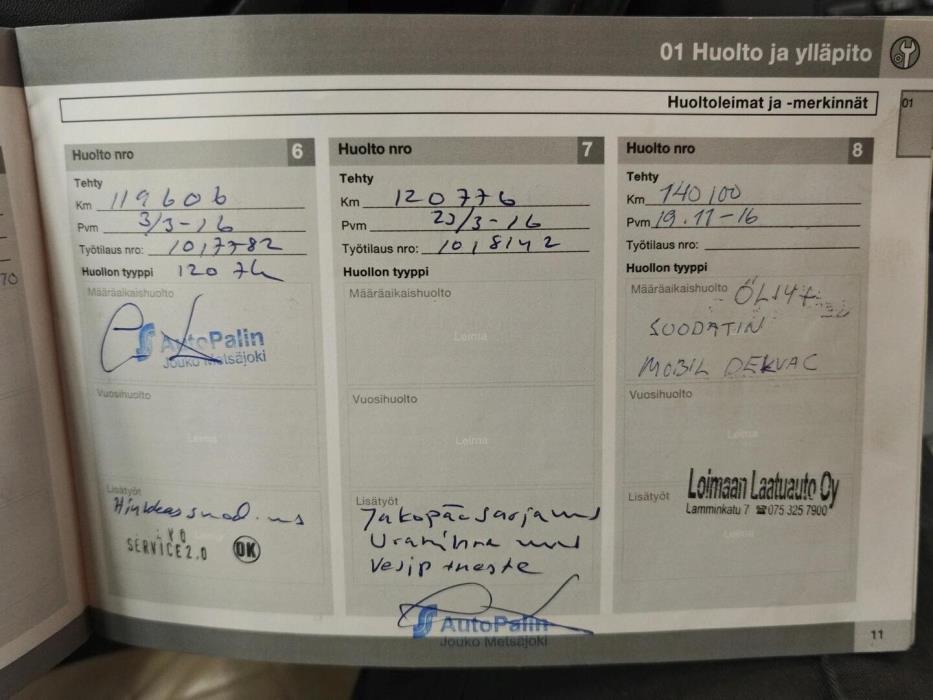 01 Huolto ja ylläpito
Huoltoleimat ja -merkinnät
01
Huolto nro 6
Tehty
Km 119606
Pvm 3/3-16
Työtilaus nro: 1017782
Huollon tyyppi 120 tk
Määräaikaishuolto
AutoPalin
Jouko Metsäjoki
Vuosihuolto
Leima
Lisätyöt
SERVICE 2.0 OK
Huolto nro 7
Tehty
Km 120776
Pvm 23/3-16
Työtilaus nro: 1018142
Huollon tyyppi
Määräaikaishuolto
Leima
Vuosihuolto
Leima
Lisätyöt
Jakopääsarja uus
Urahihna uus
Vesip + neste
AutoPalin
Jouko Metsäjoki
Huolto nro 8
Tehty
Km 140100
Pvm 19.11-16
Työtilaus nro:
Huollon tyyppi
Määräaikaishuolto ÖLJY+
SUODATIN
MOBIL DEKVAC
Vuosihuolto
Leima
Lisätyöt
Loimaan Laatuauto Oy
Lamminkatu 7 ☎075 325 7900
Leima
11
70